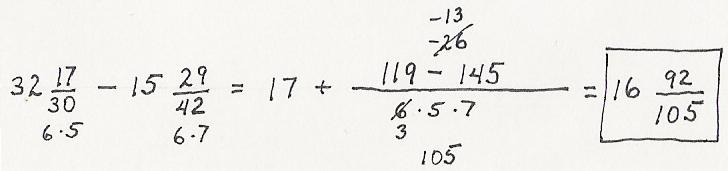 -13
-26
32 17/30 - 15 29/42 = 17 + (119 - 145)/(6·5·7) = 16 92/105
6·5 6·7 3
105